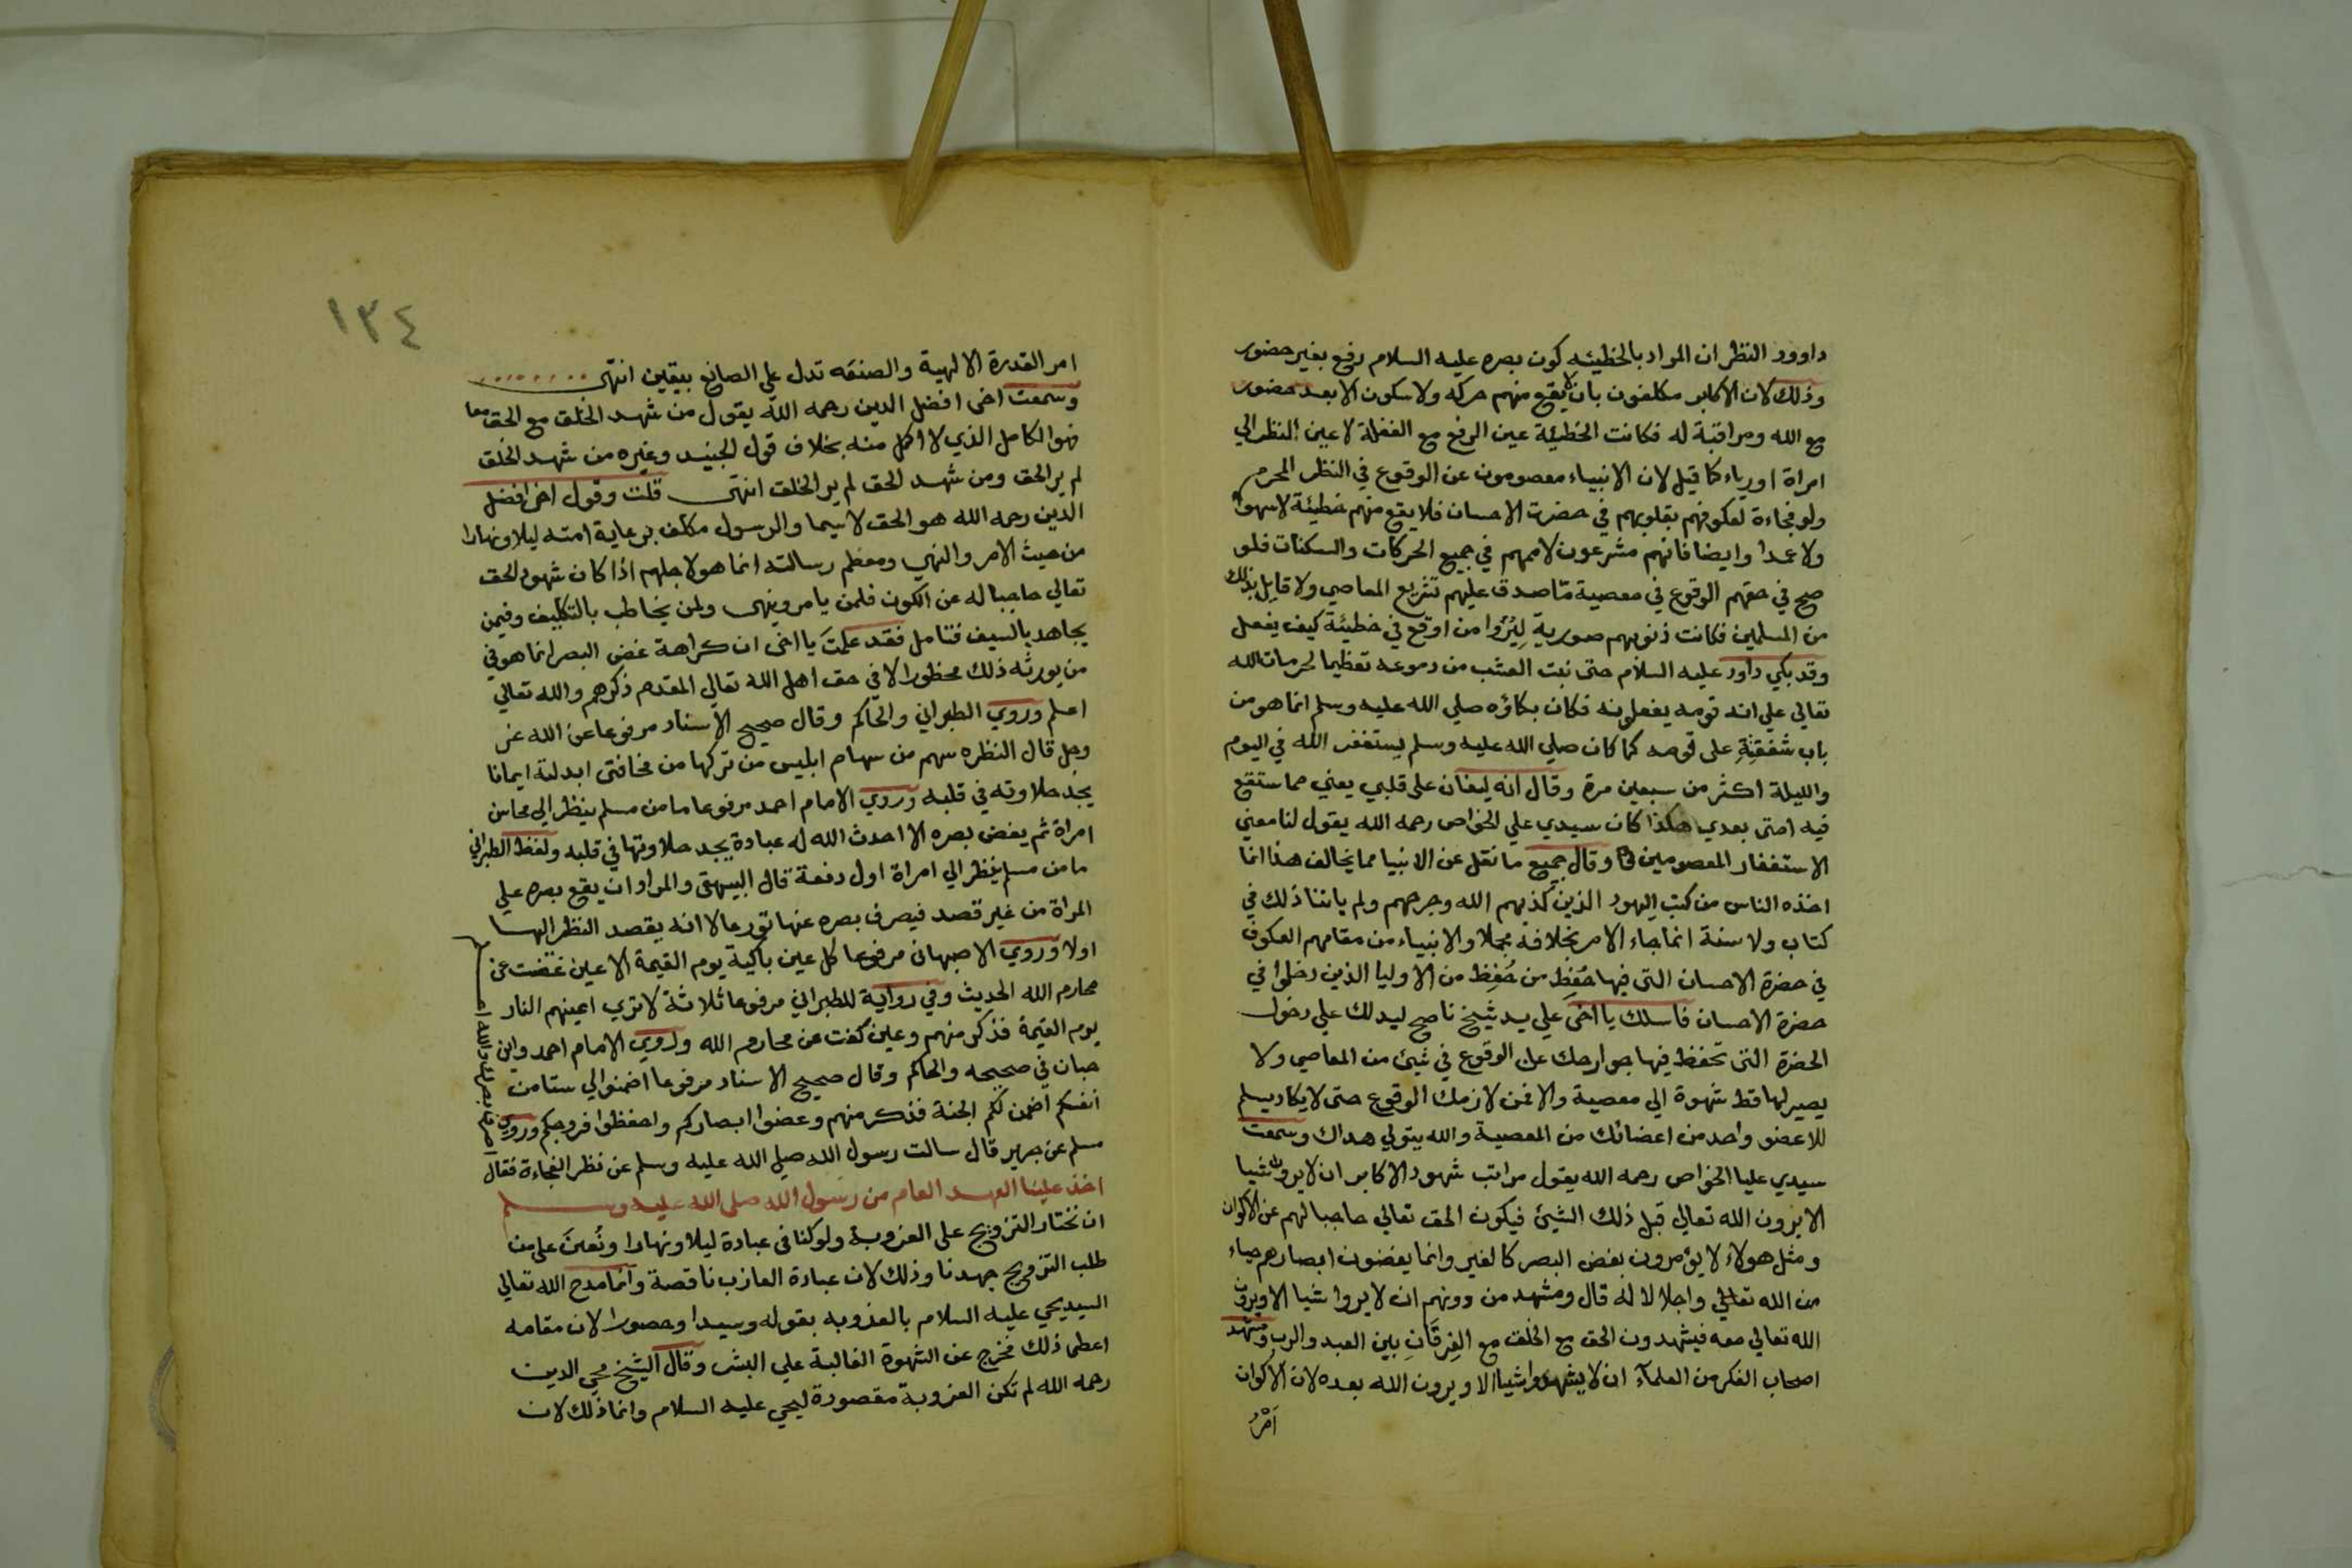 داوود النظر ان المراد بالخطيئه كون بصره عليه السلام رفع بغير حضور
وذلك لان الاكابر مكلفون بان لا يقع منهم حركه ولا سكون الا بعد حضور
مع الله ومراقبة له فكانت الخطيئة عين الرفع مع الغفلة لا عين النظر الي
امراة اورياء كما قيل لان الانبياء معصومون عن الوقوع في النظر المحرم
ولو فجاءة لعكوفهم بقلوبهم في حضرت الاحسان فلا يقع منهم خطيئة لا سهوا
ولا عمدا وايضا فانهم مشرعون لاممهم في جميع الحركات والسكنات فلو
صح في حقهم الوقوع في معصية ما صدق عليهم تشريع المعاصي ولا قايل بذلك
من المسلمين فكانت ذنوبهم صورية ليروا من اوقع في خطيئة كيف يفعل
وقد بكي داود عليه السلام حتى نبت العشب من دموعه تعظيما لحرمات الله
تعالي على انه قومه يفعلونه فكان بكاؤه صلي الله عليه وسلم انما هو من
باب شفقته على قومه كما كان صلي الله عليه وسلم يستغفر الله في اليوم
والليلة اكثر من سبعين مرة وقال انه ليغان على قلبي يعني مما ستقع
فيه امتى بعدي هكذا كان سيدي علي الخواص رحمه الله يقول لنا معني
الاستغفار المعصومين وقال جميع ما نقل عن الانبيا مما يخالف هذا انما
اخذه الناس من كتب اليهود الذين كذبهم الله وجرحهم ولم ياتنا ذلك في
كتاب ولا سنة انما جاء الامر بخلافه مجملا والانبياء من مقامهم العكوف
في حضرة الاحسان التى فيها حُفِظ من حُفِظ من الاوليا الذين دخلوا في
حضرة الاحسان فاسلك يا اخى علي يد شيخ ناصح ليدلك علي دخول
الحضرة التى تحفظ فيها جوارحك عن الوقوع في شئ من المعاصي ولا
يصير لها قط شهوة الي معصية والا فمن لازمك الوقوع حتى لا يكاد يسلم
للا عضو واحد من اعضائك من المعصية والله يتولي هداك وسمعت
سيدي عليا الخواص رحمه الله يقول مراتب شهود الاكابر ان لا يرون شيا
الا يرون الله تعالي قبل ذلك الشئ فيكون الحق تعالي حاجبا لهم عن الاكوان
ومثل هولاء لا يؤمرون بغض البصر كالغير وانما يغضون ابصارهم حياء
من الله تعالي واجلالا له قال ومشهد من دونهم ان لا يروا شيا الا ويرون
الله تعالي معه فيشهدون الحق مع الخلق مع الفرقان بين العبد والرب ومشهد
اصحاب الفكر من العلماء ان لا يشهدوا شيا الا ويرون الله بعده لان الاكوان
اَمْرُ
١٣٤
امر القدرة الالهية والصنعه تدل علي الصانع بيقين انتهى
وسمعت اخى افضل الدين رحمه الله يقول من شهد الخلق مع الحق معا
فهو الكامل الذي لا اكمل منه بخلاف قول الجنيد وغيره من شهد الخلق
لم ير الحق ومن شهد الحق لم ير الخلق انتهى قلت وقول اخى افضل
الدين رحمه الله هو الحق لا سيما والرسول مكلف برعاية امته ليلا ونهارا
من حيث الامر والنهي ومعظم رسالته انما هو لاجلهم اذا كان شهود الحق
تعالي حاجبا له عن الكون فلمن يامر وينهى ولمن يخاطب بالتكليف وفيمن
يجاهد بالسيف فتامل فقد علمتَ يا اخى ان كراهة غض البصر انما هو في
من يورثه ذلك محظورا لا في حق اهل الله تعالي المقدم ذكرهم والله تعالي
اعلم وروي الطبراني والحاكم وقال صحيح الاسناد مرفوعا عن الله عز
وجل قال النظره سهم من سهام ابليس من تركها من مخافتى ابدلته ايمانا
يجد حلاوته في قلبه وروي الامام احمد مرفوعا ما من مسلم ينظر الي محاسن
امراة ثم يغض بصره الا احدث الله له عبادة يجد حلاوتها في قلبه ولفظ الطبراني
ما من مسلم ينظر الي امراة اول دفعة قال البيهقى والمراد ان يقع بصره علي
المراة من غير قصد فيصرف بصره عنها تورعا لا انه يقصد النظر اليها
اولا وروي الاصبهانى مرفوعا كل عين باكية يوم القيمة الا عين غضت عن
محارم الله الحديث وفي رواية للطبراني مرفوعا ثلاثة لا تري اعينهم النار
يوم القيمة فذكر منهم وعين كفت عن محارم الله وروي الامام احمد وابن
حبان في صحيحه والحاكم وقال صحيح الاسناد مرفوعا اضمنوا لي ستا من
انفسكم اضمن لكم الجنة فذكر منهم وغضوا ابصاركم واحفظوا فروجكم وروي
مسلم عن جرير قال سالت رسول الله صلي الله عليه وسلم عن نظر الفجاءة فقال
اصرف بصرك والله اعلم
اخذ علينا العهد العام من رسول الله صلى الله عليه وسلم
ان نختار التزويج على العزوبة ولو كنا في عبادة ليلا ونهارا ونُعينَ علي من
طلب التزويج جهدنا وذلك لان عبادة العازب ناقصة وانما مدح الله تعالي
السيد يحيي عليه السلام بالعزوبه بقوله وسيدا وحصورا لان مقامه
اعطى ذلك فخرج عن الشهوة الغالبة علي البشر وقال الشيخ محي الدين
رحمه الله لم تكن العزوبة مقصودة ليحيي عليه السلام وانما ذلك لان